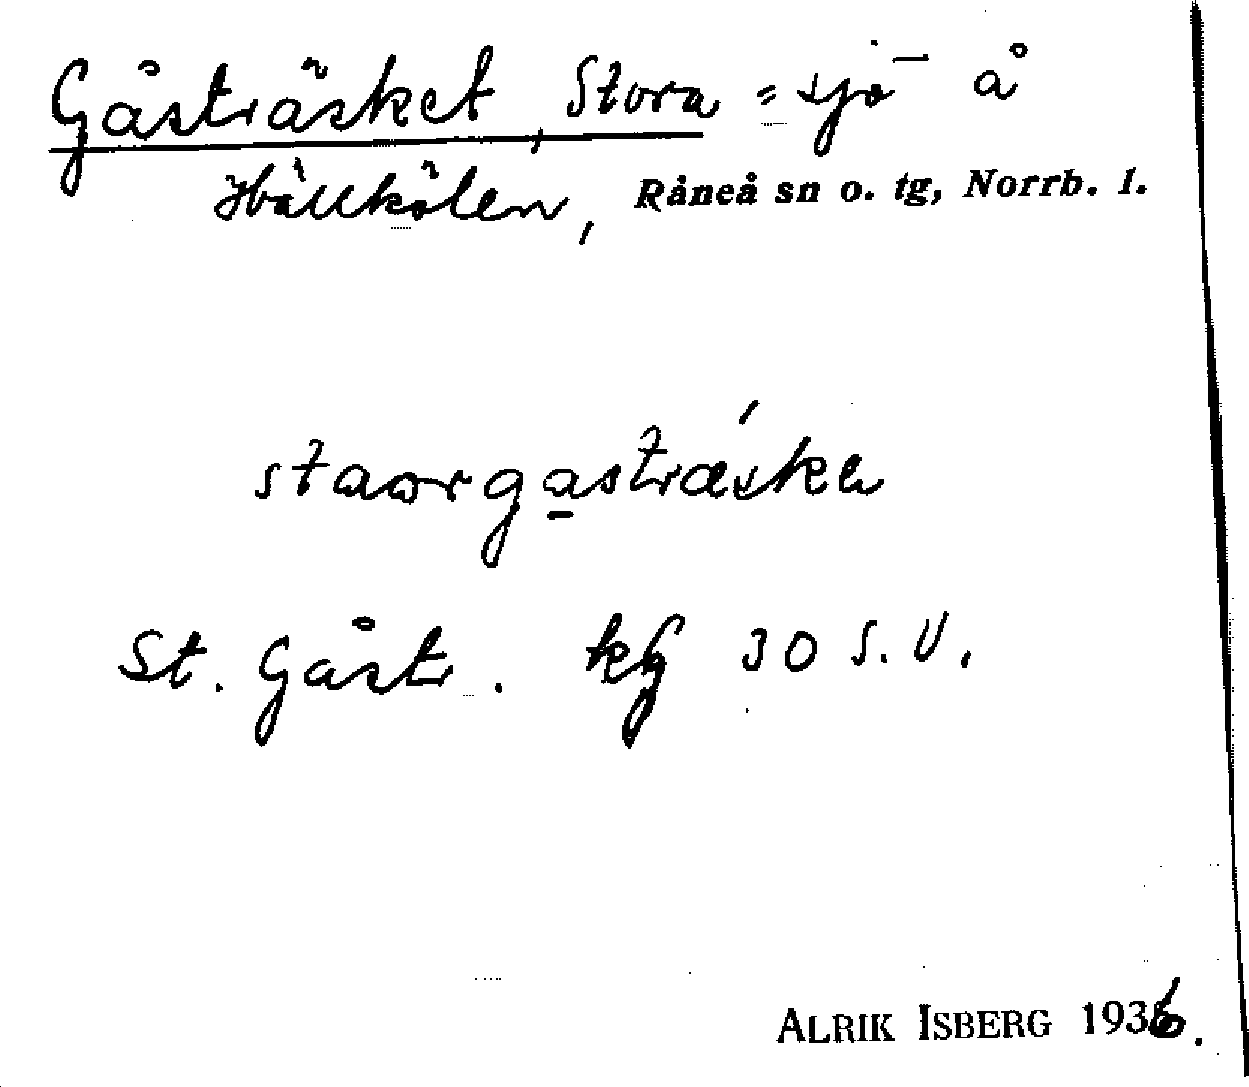 Gåsträsket, Stora = sjö å
Hällkölen, Råneå sn o. tg, Norrb. l.
staorgasträska
St. Gåstr. kg 30 S.V.
ALRIK ISBERG 1936.